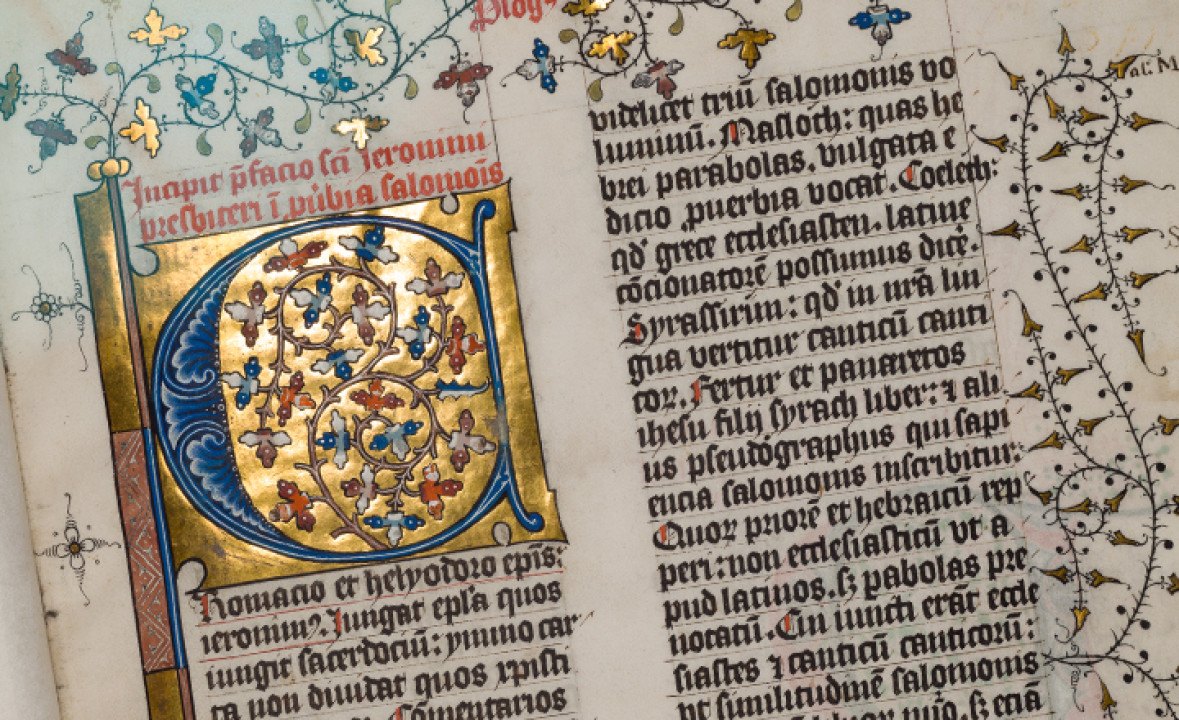 Plog⁹
Incipit p̄facio sc̄i Ieronimi
presbiteri ī ꝓūbia salomōis
C
Homacio et helyodoro ep̄is:
ieronim⁹. Jungat ep̄l'a quos
iungit sacerdociū: ymmo car
ta non diuidat quos xp̄isti
Cōmentarios
videlicet triū salomonis vo
luminū. Masloth: quas he
brei parabolas. vulgata e
dicio ꝓuerbia vocat. Coeleth:
qd̓ grece ecclesiasten. latine
cōcionatorē possumus dicē.
Syrassirim: qd̓ in nr̄a lin
gua vertitur canticū canti
coꝝ. Fertur et panaretos
ihesu filij syrach liber: ⁊ ali
us pseudographus qui sapi
encia salomonis inscribitur:
Quoꝝ priorē et hebraicū rep
peri: non ecclesiasticū vt a
pud latinos. sꝫ ꝑabolas pre
notatū. Cui iuncti erāt eccle
siastes ⁊ canticū canticorū:
vt similitudinē salomonis
sꝫ eciā